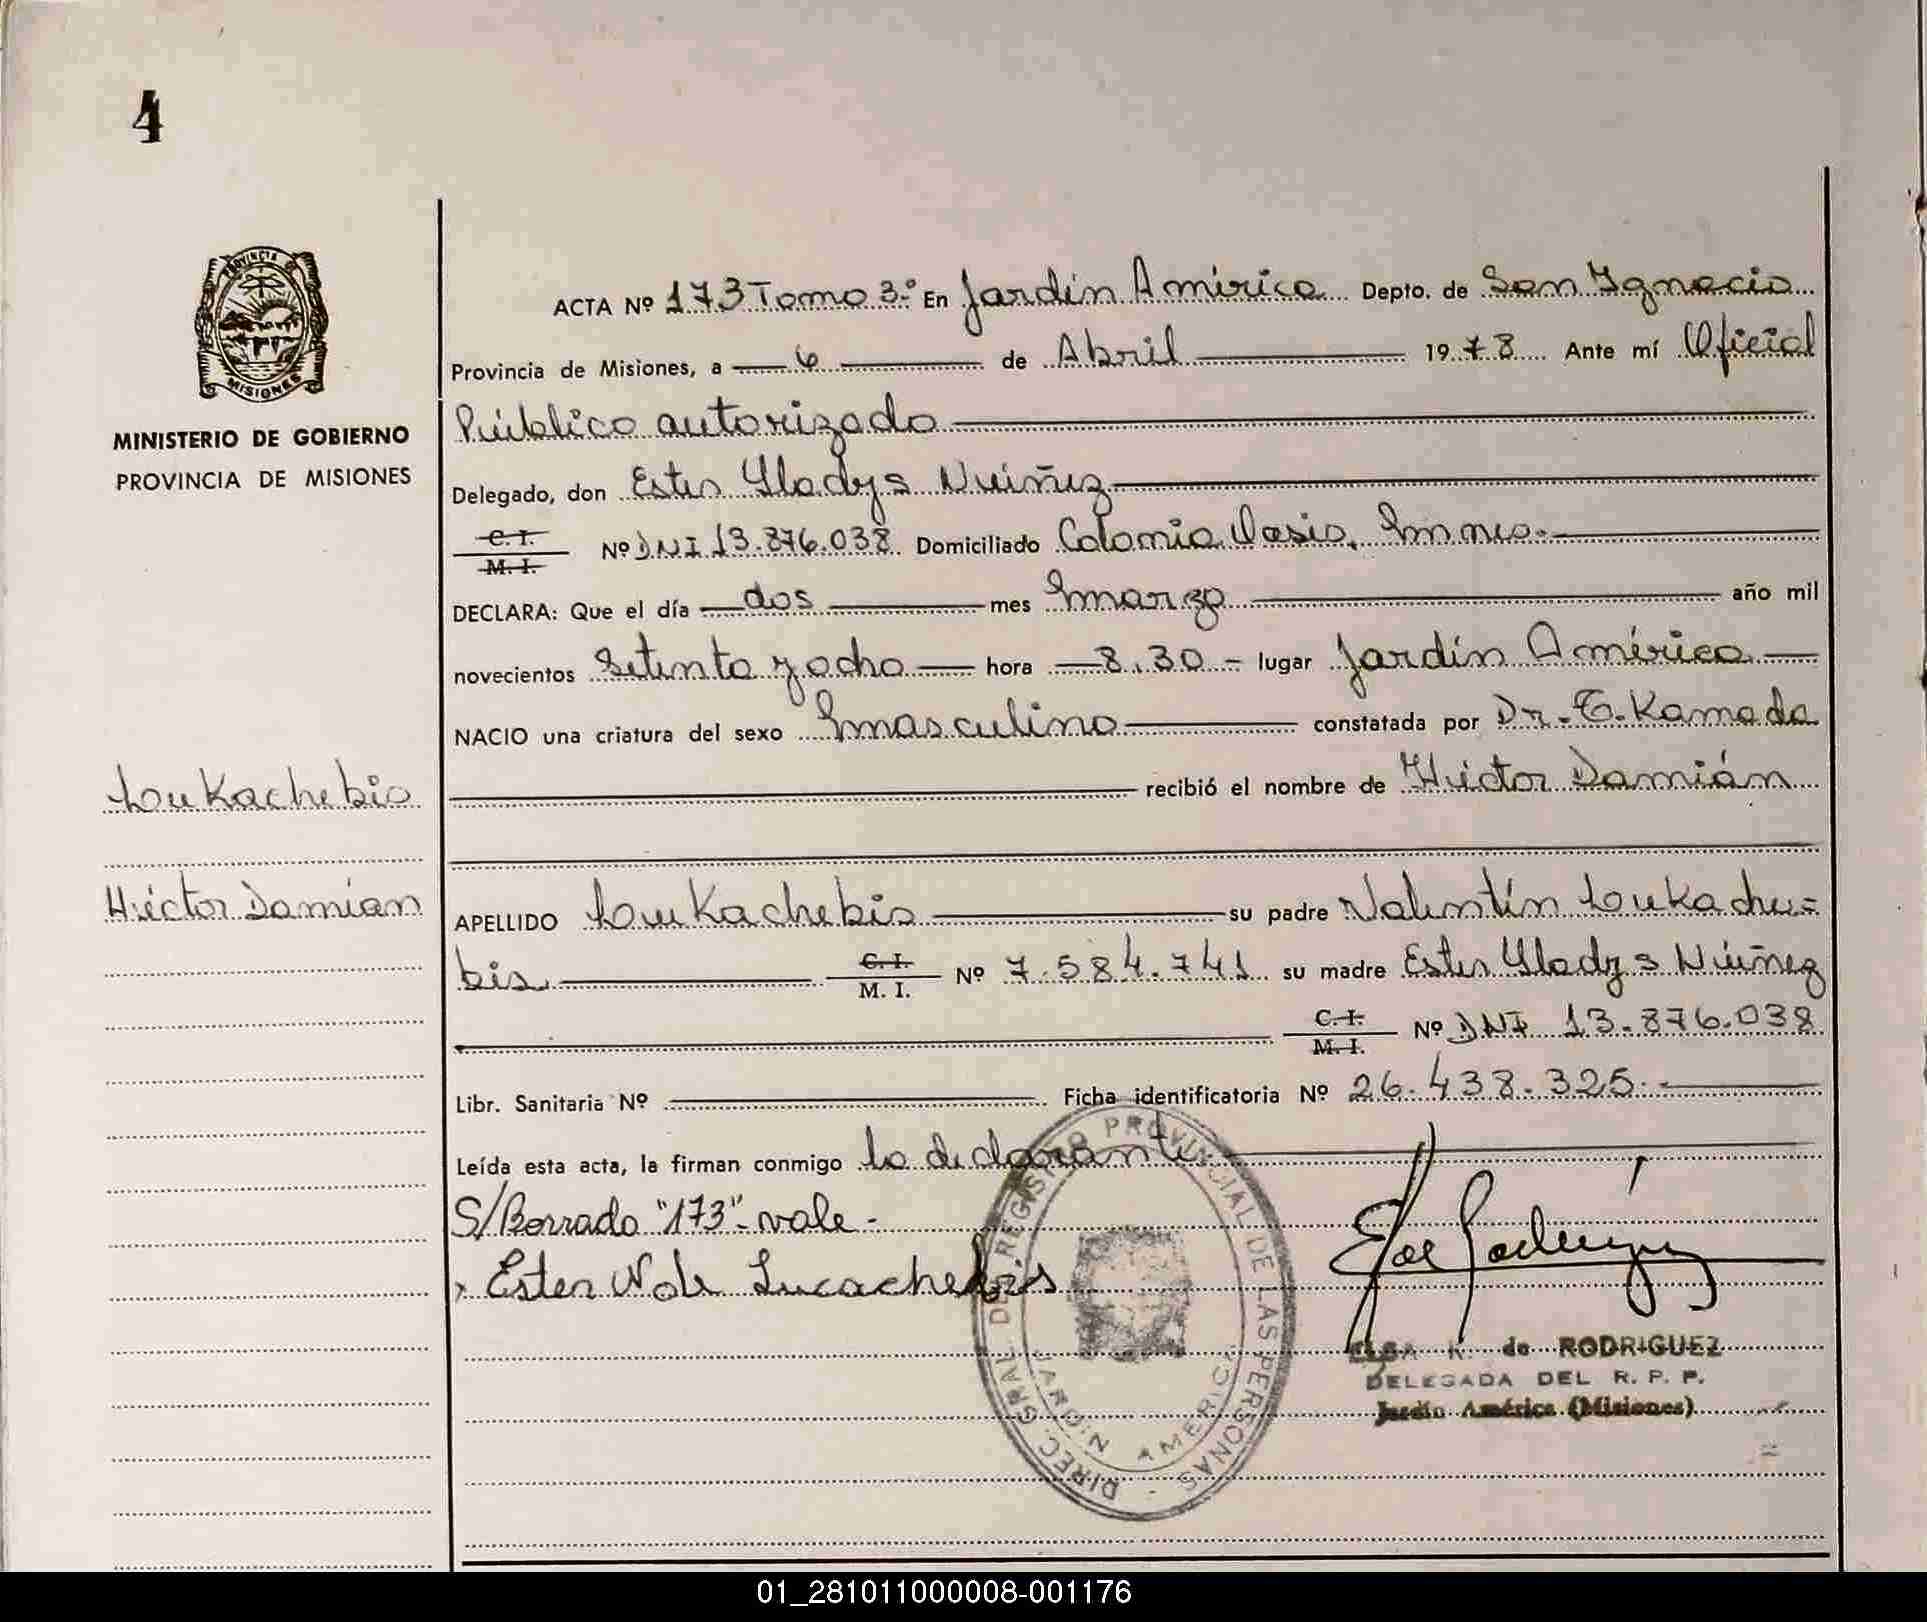 4
PROVINCIA DE
MISIONES
MINISTERIO DE GOBIERNO
PROVINCIA DE MISIONES
ACTA Nº 173 Tomo 3º En Jardín América Depto. de San Ignacio
Provincia de Misiones, a 6 de Abril 1978 Ante mí Oficial
Público autorizado
Delegado, don Ester Gladys Núñez
C. I.
M. I.
Nº DNI 13.876.038 Domiciliado Colonia Oasis, Mnes.
DECLARA: Que el día dos mes marzo año mil
novecientos Setenta y ocho hora 8.30 lugar Jardín América
NACIO una criatura del sexo masculino constatada por Dr. T. Kamada
recibió el nombre de Héctor Damián
Loukachebis
Héctor Damián
APELLIDO Loukachebis su padre Valentín Loukache=
bis C. I. M. I. Nº 7.584.741 su madre Ester Gladys Núñez
C. I. M. I. Nº DNI 13.876.038
Libr. Sanitaria Nº Ficha identificatoria Nº 26.438.325.-
Leída esta acta, la firman conmigo la declarante
S/Borrado "173" - vale -
Ester N de Lucachebis
DIREC. GRAL DE REGISTRO PROVINCIAL DE LAS PERSONAS
JARDIN AMERICA
ELSA K. de RODRIGUEZ
DELEGADA DEL R. P. P.
Jardín América (Misiones)
01_281011000008-001176